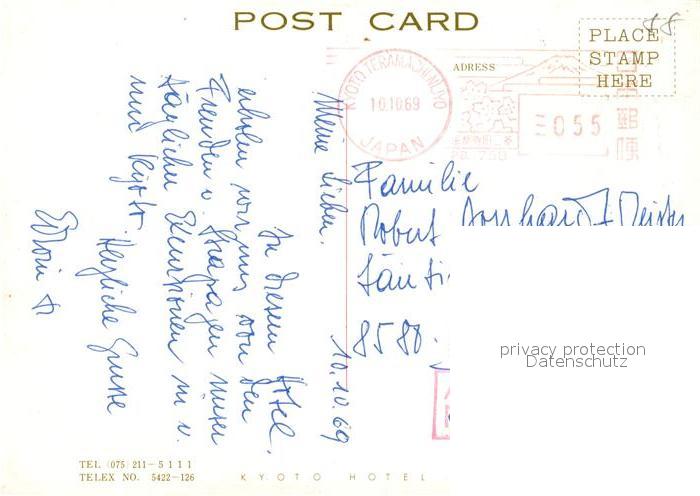 POST CARD
88
PLACE
STAMP
HERE
ADRESS
KYOTO TERAMACHINIJO
10.10.69
JAPAN
055
郵便
NO. 750
Meine Lieben. 10.10.69
In diesem Hotel
erholen wir uns von den
Freuden u. Strapazen unserer
täglichen Exkursionen in u.
um Kyoto.
Herzliche Grüsse
Familie
Robert Meister
8580
privacy protection
Datenschutz
TEL (075) 211-5111
TELEX NO. 5422-126
KYOTO HOTEL